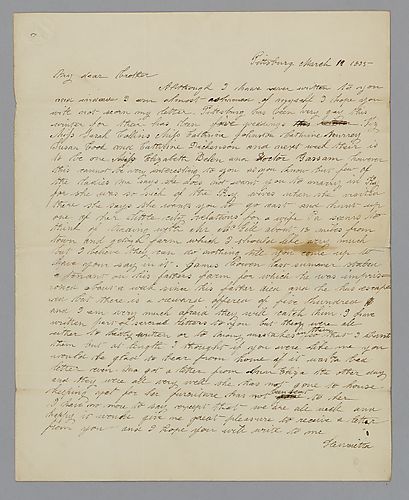 Pittsburg March 1835
My dear Brother
Although I have never written to you
and indeed I am almost ashamed of myself I hope you
will not scorn my letter. Pittsburg has been very gay this
winter for there has been five weddings this winter
Miss Sarah Collins Miss Catharine Johnston Catharine Murray
Susan Cook and Catharine Dickerson and next week there is
to be one Miss Elizabeth Bolen and Doctor Gazzam however
this cannot be very interesting to you as you know but few of
the ladies Ma says she does not want you to marry in
for she was so sick of the Key wives when she was
there she says she wants you to go east and hunt up
one of her relations for a wife Pa seems to
think of trading with Mr. Hill about 12 miles from
town and getting farm which I should like very much
but I believe they can do nothing till you come up to
have your say in it. James last summer
a on his fathers farm for which he was impris
oned about a week since his father died and he has escaped
and but there is a reward offered of five hundred $
and I am very much afraid they will catch him I have
written part of several letters to you but they were all
either so badly written or so many mistakes that I burnt
them but at length I thought if you were like me you
would be glad to hear from home if it was a bad
letter even Ma got a letter from Ann Eliza the other day
and they were all very well she has not gone to house
keeping yet for her furniture has not been sent to her
I have no more to say except that we are all well and
happy it would give me great pleasure to receive a letter
from you and I hope you will write to me
Henrietta